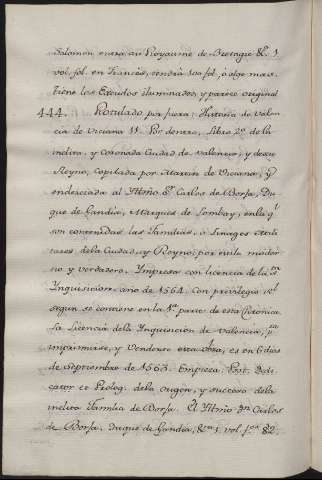 Salomon enzra, au Royaume de Bretagne &c. 1.
vol. fol. en Francés, tendrá 100 fol. ó algo mas.
tiene los Escudos iluminados, y parece original
444. Rotulado por fuera: Historia de Valen-
cia de Viciana 11. Por dentro, Libro 2º de la
inclita, y coronada Ciudad de Valencia, y de su
Reyno, copilada por Martin de Viciana, y
enderezada al Illmo. Sr. Carlos de Borja, Du-
que de Gandia, Marques de Lombay, en la q.
son contenidas las Familias, ó Linages Mili-
tares de la Ciudad, y Reyno; por estilo moder-
no y verdadero. Impreso con licencia de la Sta.
Inquisicion año de 1564. Con privilegio Rl.
segun se contiene en la 1ª. parte de esta Coronica.
La Licencia de la Inquisicion de Valencia, pa.
imprimirse, y Venderse esta obra, es en 6 dias
de Septiembre de 1563. Empieza: Post. Dedi-
cator. et Prolog. de la origen, y suceso de la
inclita Familia de Borja. El Illmo. Dn. Carlos
de Borja, Duque de Gandia, &ca. 1. vol. fo. 82.